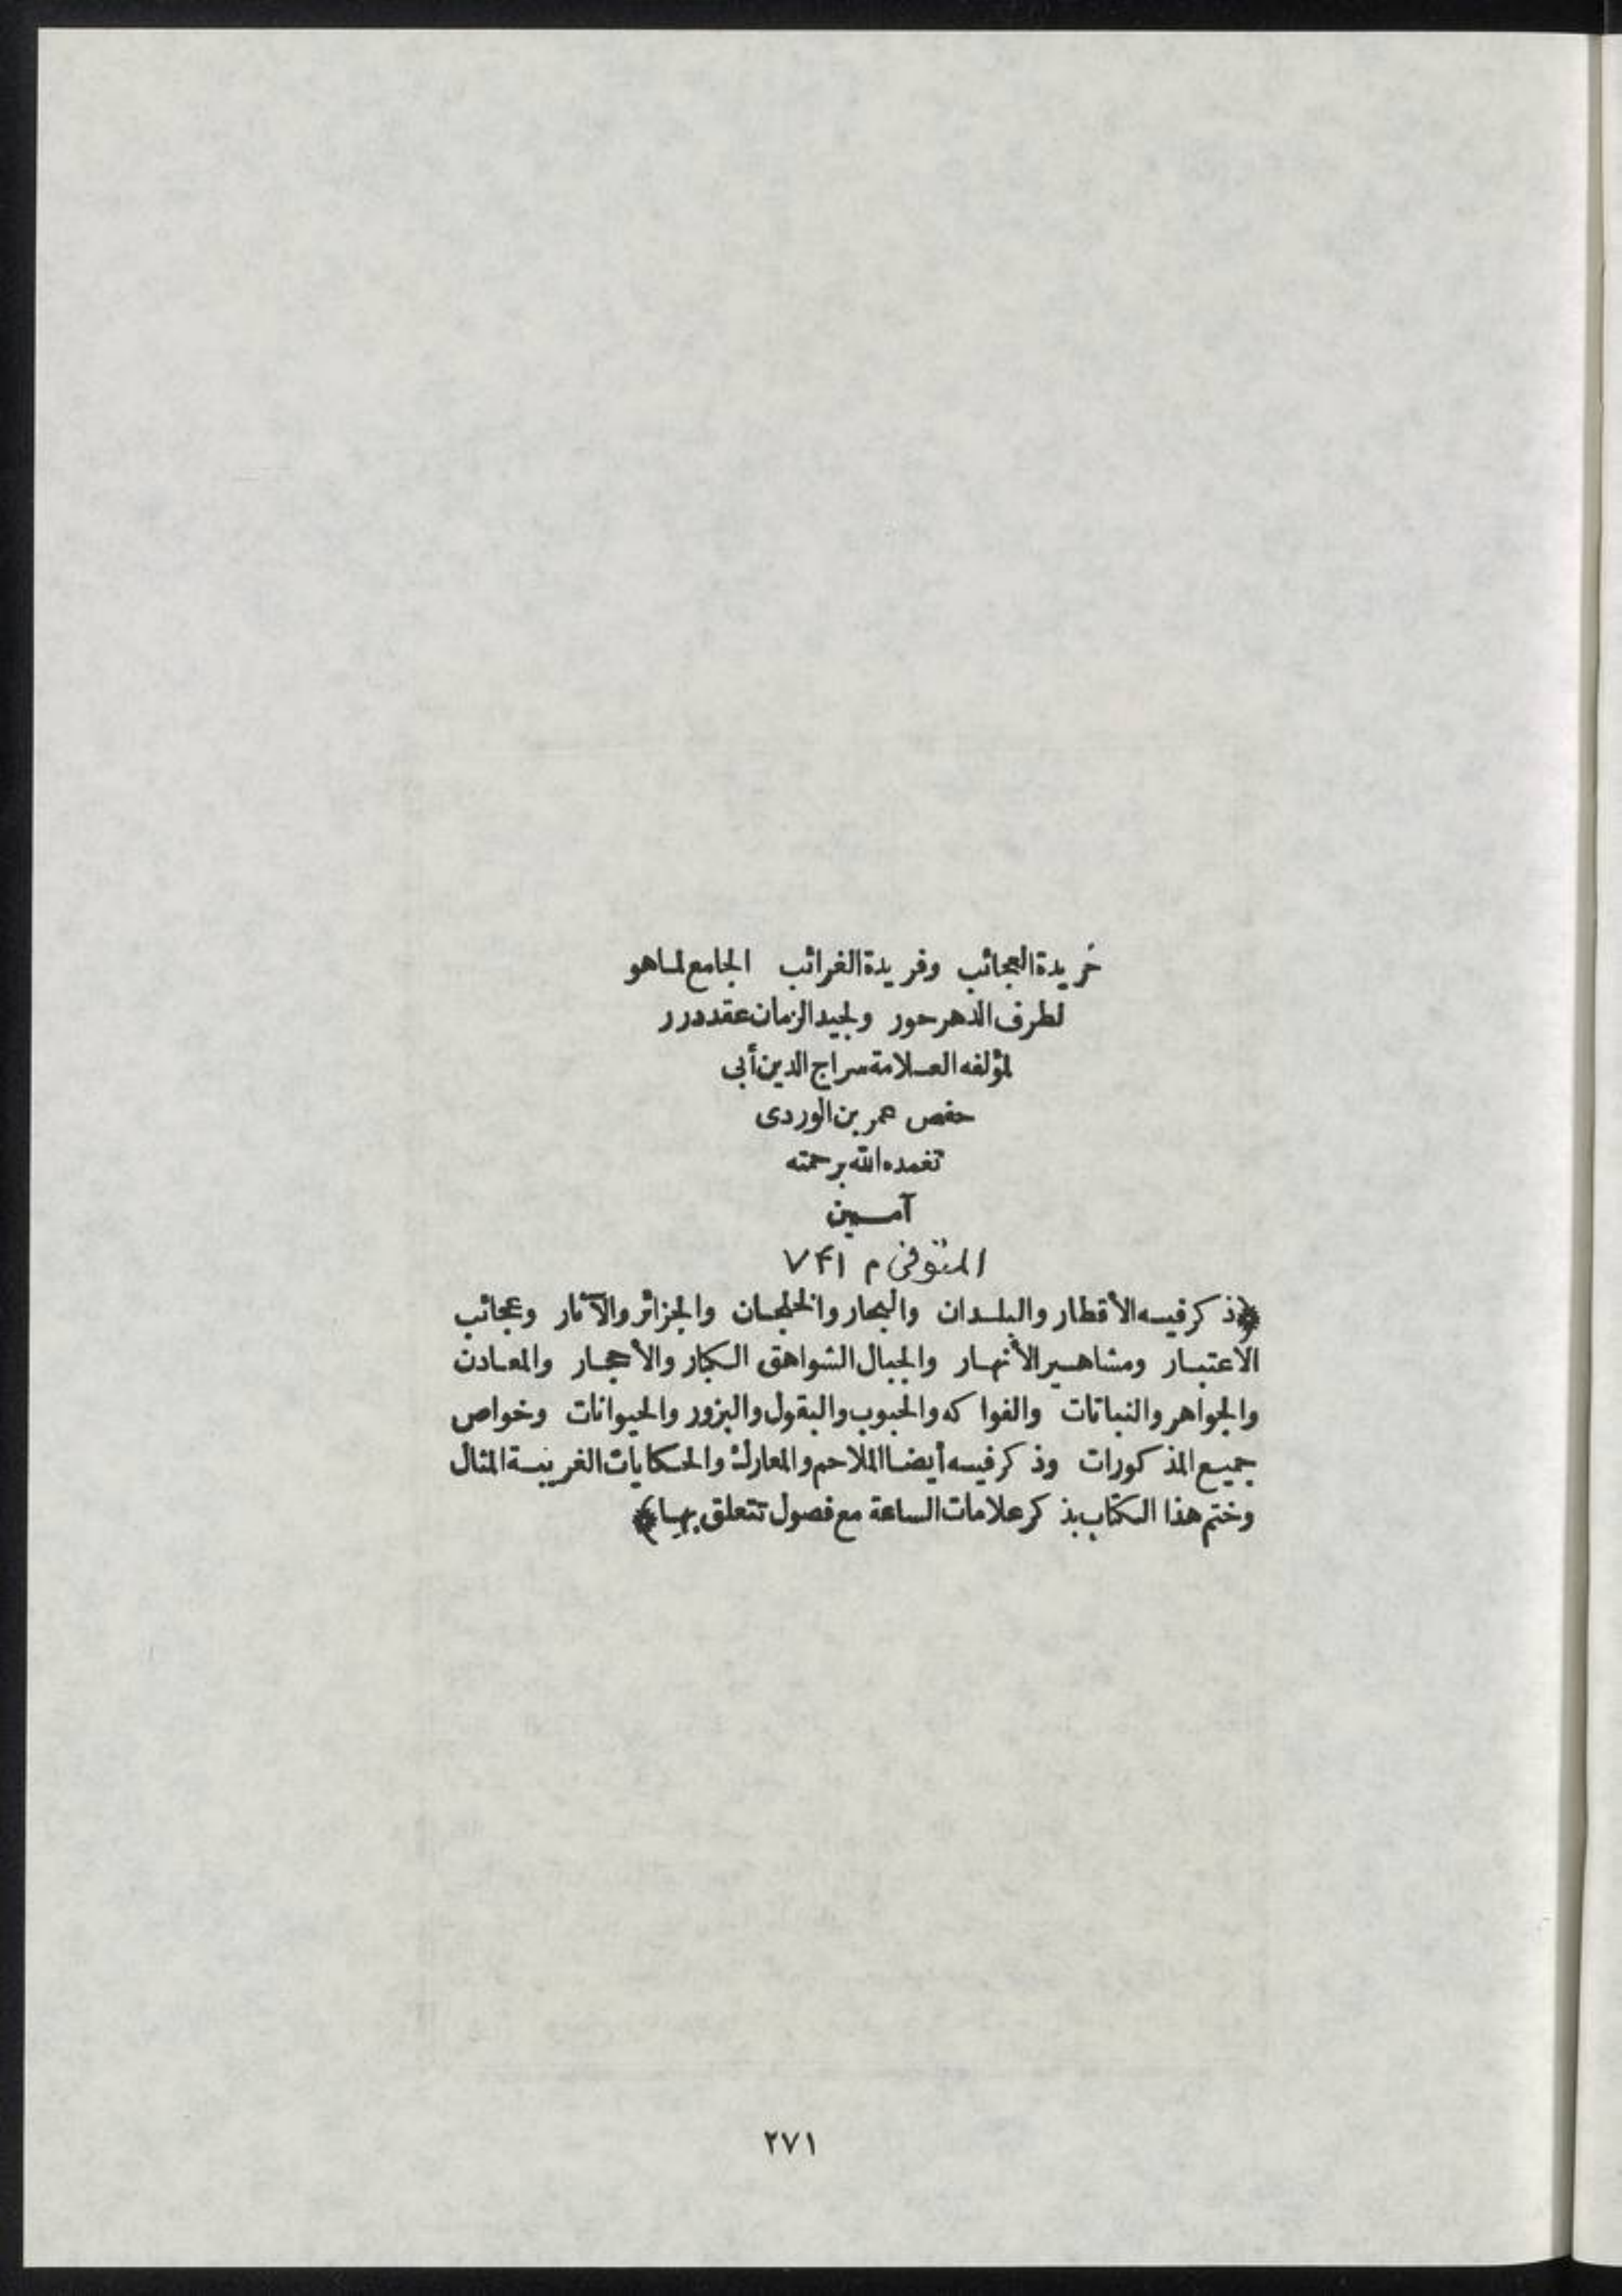 خريدة العجائب وفريدة الغرائب الجامع لما هو
لطرف الدهر حور ولجيد الزمان عقد درر
لمؤلفه العلامة سراج الدين أبى
حفص عمر بن الوردى
تغمده الله برحمته
آمين
المتوفى م ٧٤١
﴿ذكر فيه الأقطار والبلدان والبحار والخلجان والجزائر والآثار وعجائب
الاعتبار ومشاهير الأنهار والجبال الشواهق الكبار والأحجار والمعادن
والجواهر والنباتات والفواكه والحبوب والبقول والبزور والحيوانات وخواص
جميع المذكورات وذكر فيه أيضا الملاحم والمعارك والحكايات الغريبة المثال
وختم هذا الكتاب بذكر علامات الساعة مع فصول تتعلق بها﴾
٢٧١